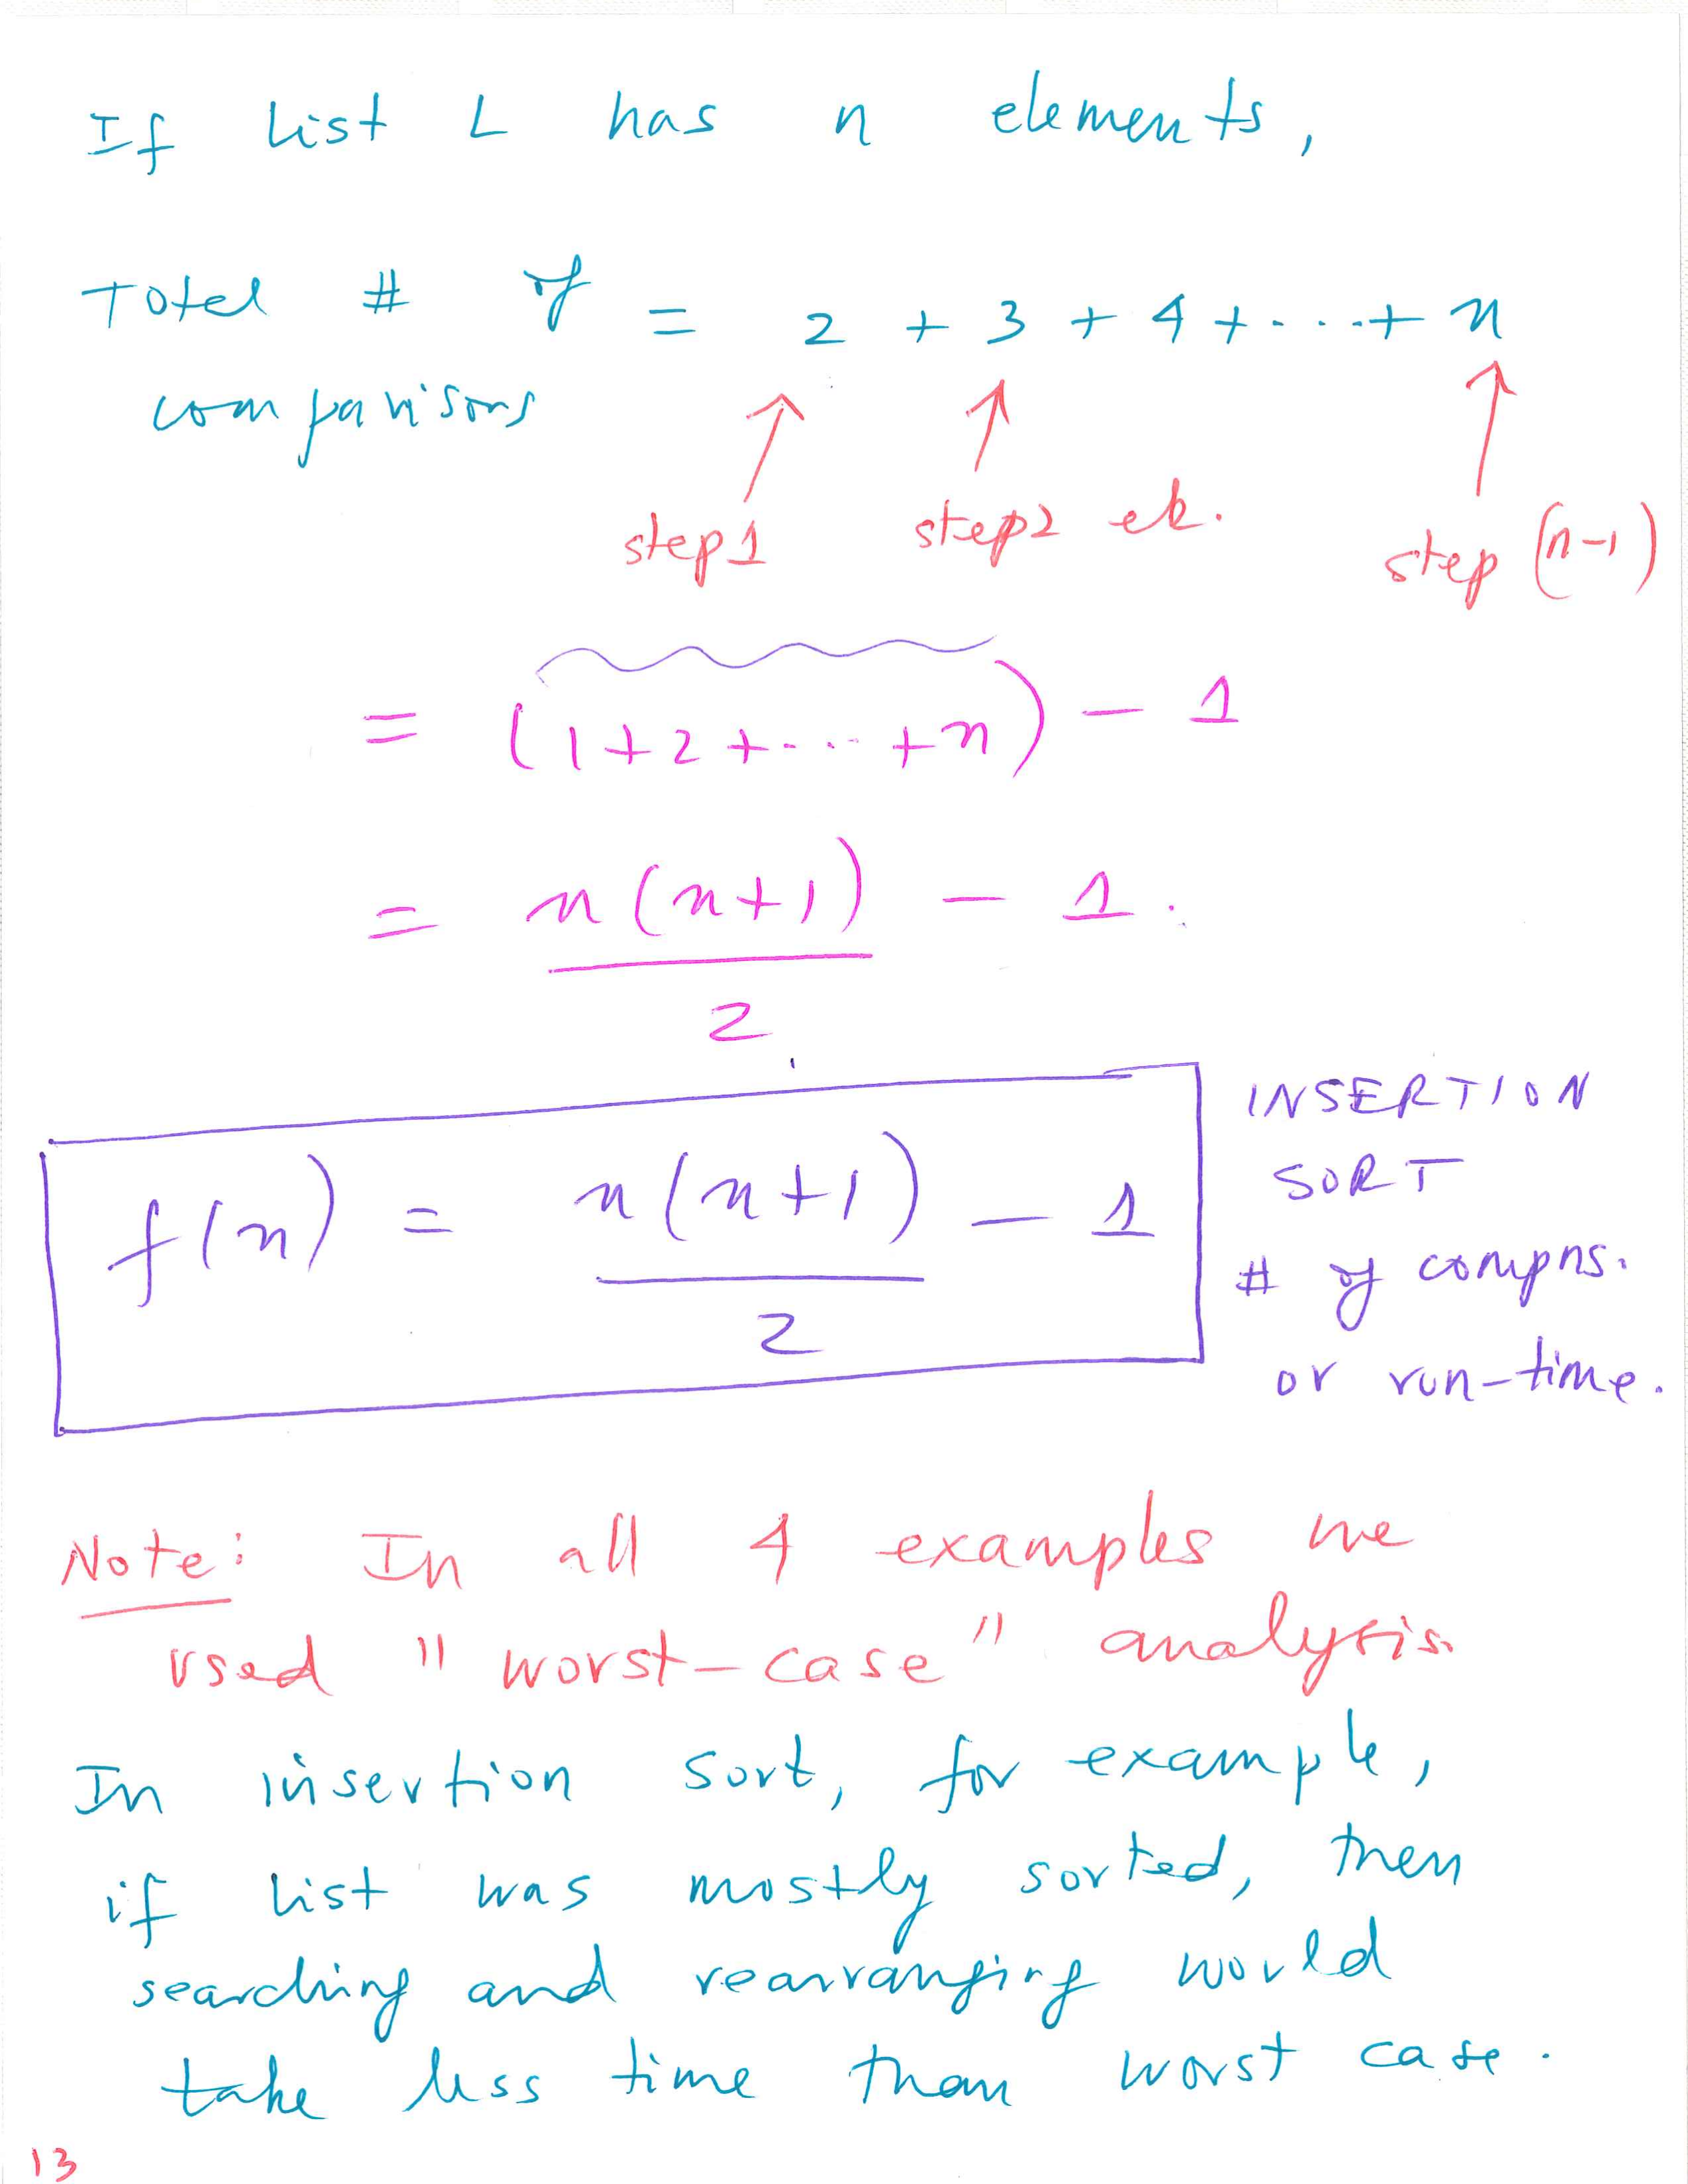 If list L has n elements,
Total # of = 2 + 3 + 4 + ... + n
comparisons
step 1 step 2 etc. step (n-1)
= (1+2+...+n) - 1
= n(n+1)/2 - 1.
f(n) = n(n+1)/2 - 1
INSERTION
SORT
# of compns.
or run-time.
Note: In all 4 examples we
used "worst-case" analysis.
In insertion sort, for example,
if list was mostly sorted, then
searching and rearranging would
take less time than worst case.
13